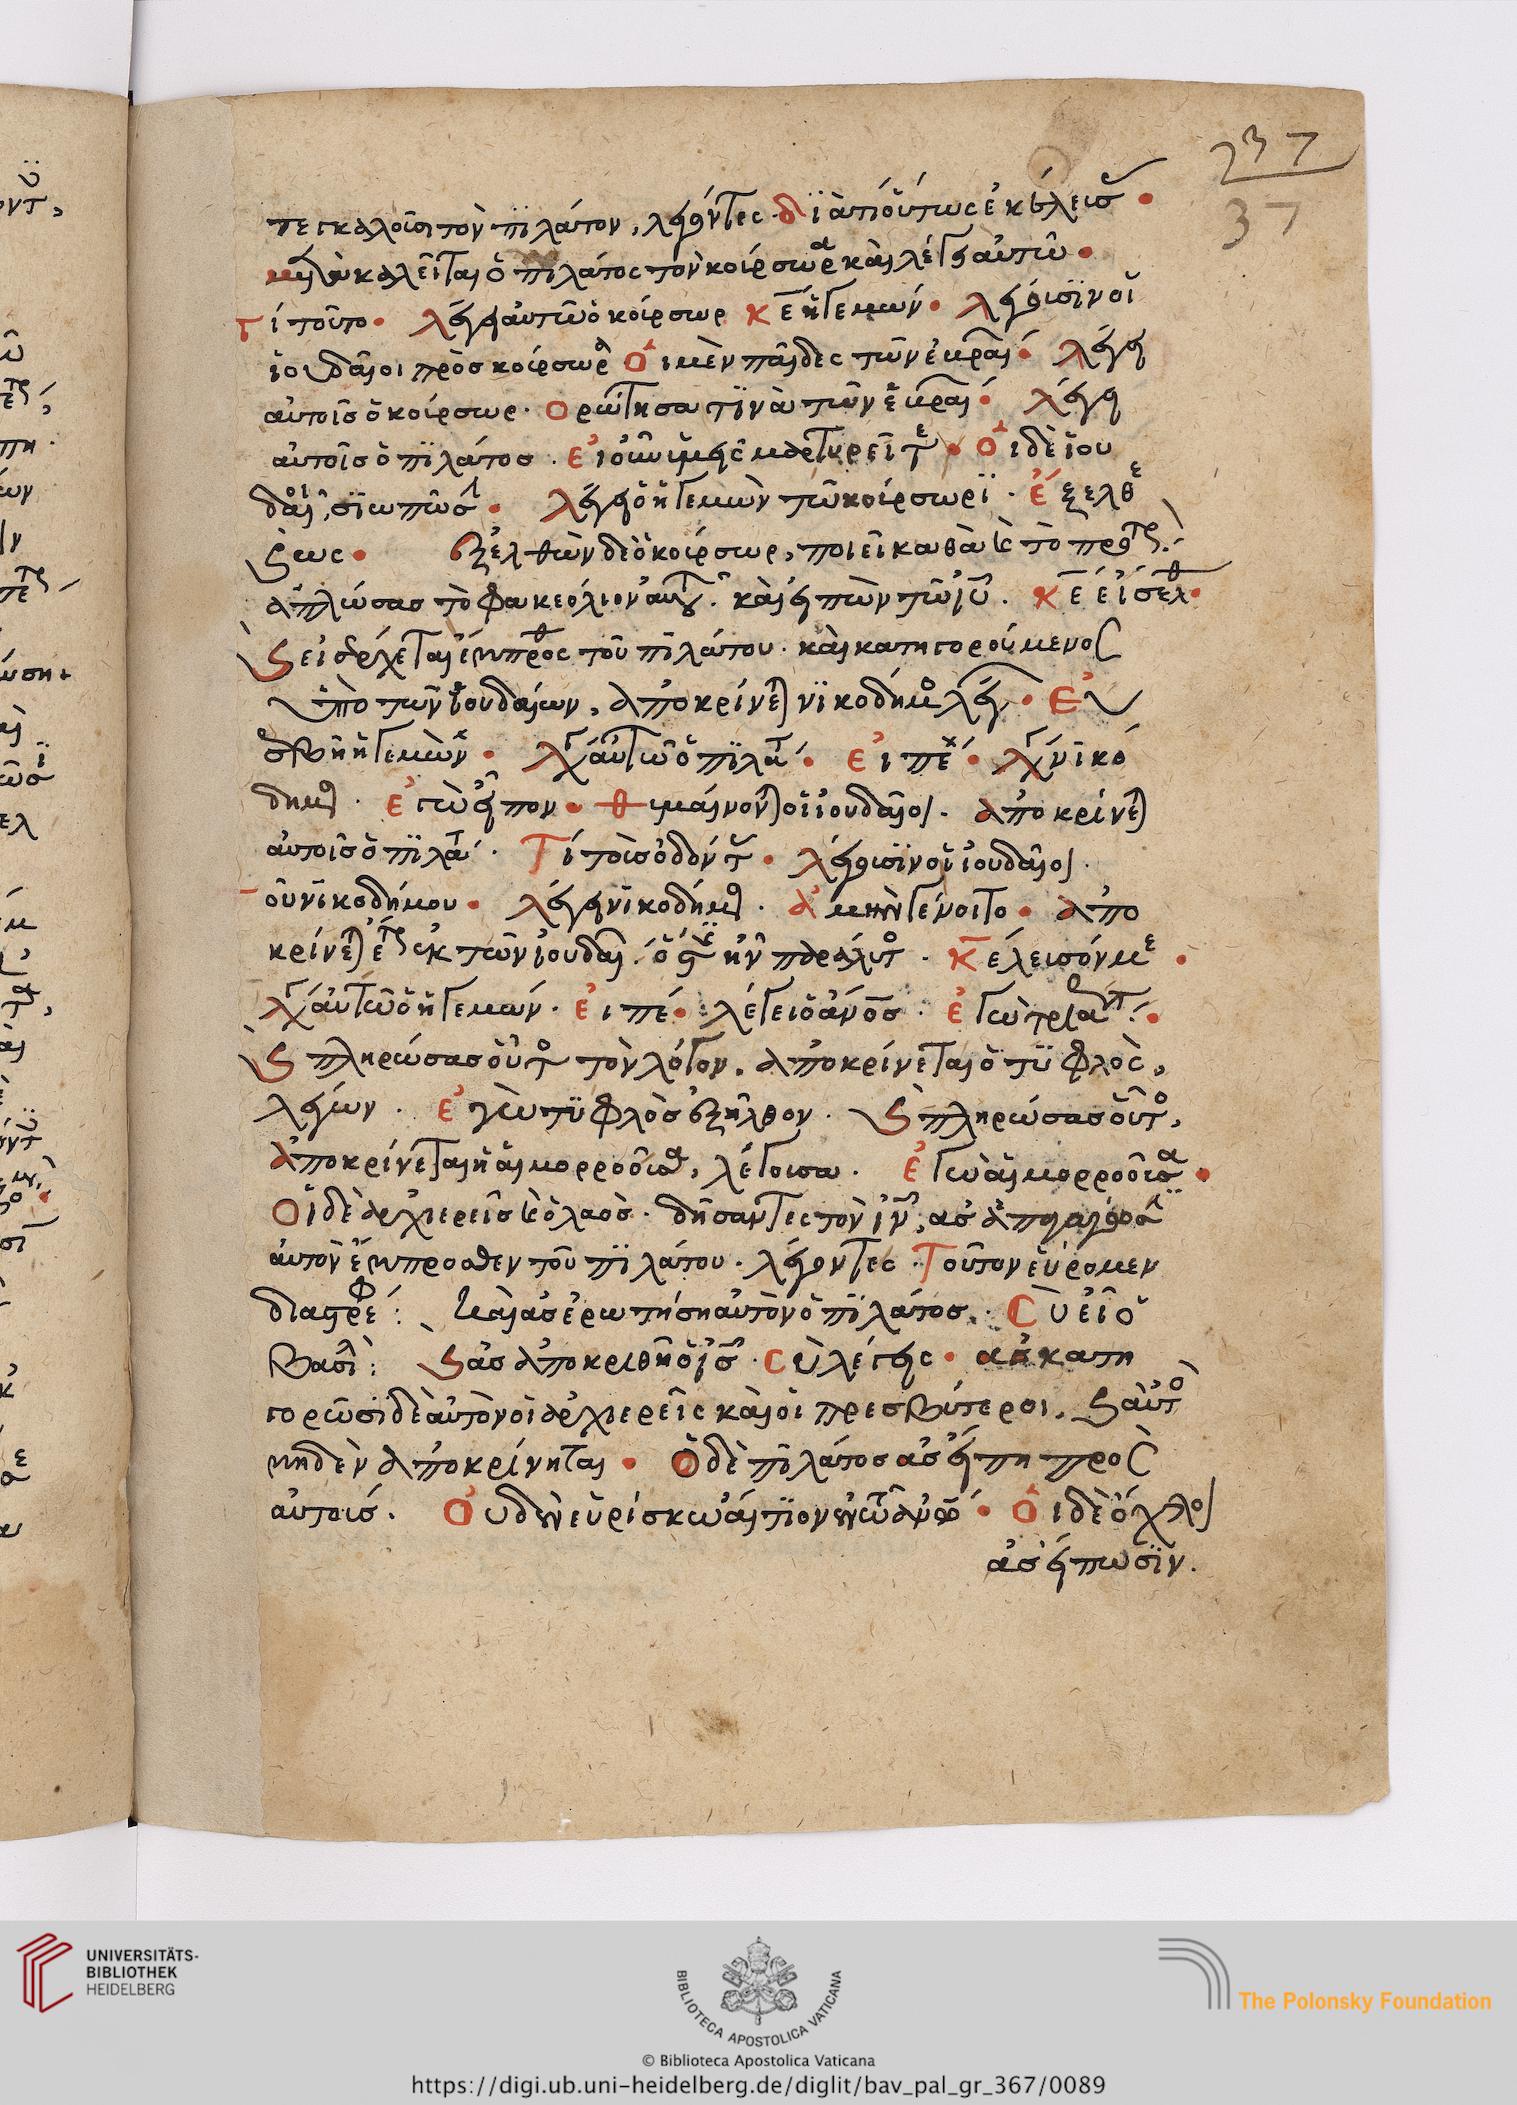 237
37
πετκαλοῦσι τὸν πϊλάτον, λέγόντες· διατί οὕτως ἐκέλεισ
μετακαλεῖται ὁ πιλάτος τὸν κούρσωρα καὶ λέγει αὐτῶ
τί τοῦτο· λέγει αὐτῶ ὁ κούρσωρ κε ἡγεμών· λέγουσϊν οἱ
ἰουδαῖοι πρὸς κούρσωρα Οἱ μὲν παῖδες τῶν ἑβραί· λέγει
αὐτοῖς ὁ κούρσωρ· ορώτησα τϊνὰ τῶν ἑβραί· λέγει
αὐτοῖς ὁ πϊλάτος· Εἰ οὖν ὑμεῖς μαρτυρεῖτε· Οἱ δὲ ἰου
δαῖοι, σϊωπῶσι· λέγει ὁ ἡγεμὼν τῶ κούρσωρϊ· ἔξελθε
ἕως· ἐξελθὼν δὲ ὁ κούρσωρ, ποιεῖ καθὰ καὶ τὸ πρότερ·
ἁπλώσας τὸ φακεόλιον αὐτοῦ· καὶ εἰπὼν τῶ ιυ· κε εἴσελθ
καὶ εἰσέρχεται ἔμπροσθ τοῦ πϊλάτου· καὶ κατηγορούμενος
ὑπὸ τῶν ἰουδαίων, ἀποκρίνετ νϊκοδήμ λέγ· Εὐ
σεβῆ ἡγεμὼν· λέγ αὐτῶ ὁ πϊλάτ· εἰπὲ· λέγ νϊκό
δημος· ἐγὼ εἶπον· θυμαίνοντ οἱ ἰουδαῖοι· ἀποκρίνετ
αὐτοῖς ὁ πϊλάτ· Τί τοὺς ὀδόντ· λέγουσϊν οἱ ἰουδαῖοι·
οὐ νϊκοδήμου· λέγει νϊκοδήμος· ἀμὴν γένοιτο· ἀπο
κρίνετ ἕτερ ἐκ τῶν ἰουδαί ἦν παράλυτο· Κέλεισόν με
λέγ αὐτῶ ὁ ἡγεμών· εἰπέ· λέγει ὁ ἄνος· ἐγὼ
καὶ πληρώσας οὗτο τὸν λόγον, ἀποκρίνεται ὁ τϋφλὸς,
λέγων· ἐγὼ τϋφλὸς ἐξῆλθον· καὶ πληρώσας οὗτο,
ἀποκρίνεται ἡ αἱμορροοῦσα, λέγουσα· ἐγὼ αἱμορροοῦσα
Οἱ δὲ ἀρχιερεῖς καὶ ὁ λαὸς· δήσαντες τὸν ιν, ἀς
αὐτὸν ἔμπροσθεν τοῦ πϊλάτου· λέγοντες· Τοῦτον εὕρομεν
διαστρέφ: Καὶ ἀς ἐρωτήση αὐτὸν ὁ πϊλάτος· Σὺ εἶ ὁ
βασιλ: καὶ ἀς ἀποκριθῆ ὁ ις· σὺ λέγεις· ἀς κατη
γορῶσϊ δὲ αὐτὸν οἱ ἀρχιερεῖς καὶ οἱ πρεσβύτεροι, καὶ αὐτὸ
μηδὲν ἀποκρίνηται· Ὁ δὲ πϊλάτος ἀς εἴπη προς
αὐτοὺς· Οὐδὲν εὑρίσκω αἴτϊον ἐν τῶ ἀνω· Οἱ δὲ ὄχλοι
ἀς εἴπωσϊν.
UNIVERSITÄTS-
BIBLIOTHEK
HEIDELBERG
BIBLIOTECA APOSTOLICA VATICANA
The Polonsky Foundation
© Biblioteca Apostolica Vaticana
https://digi.ub.uni-heidelberg.de/diglit/bav_pal_gr_367/0089